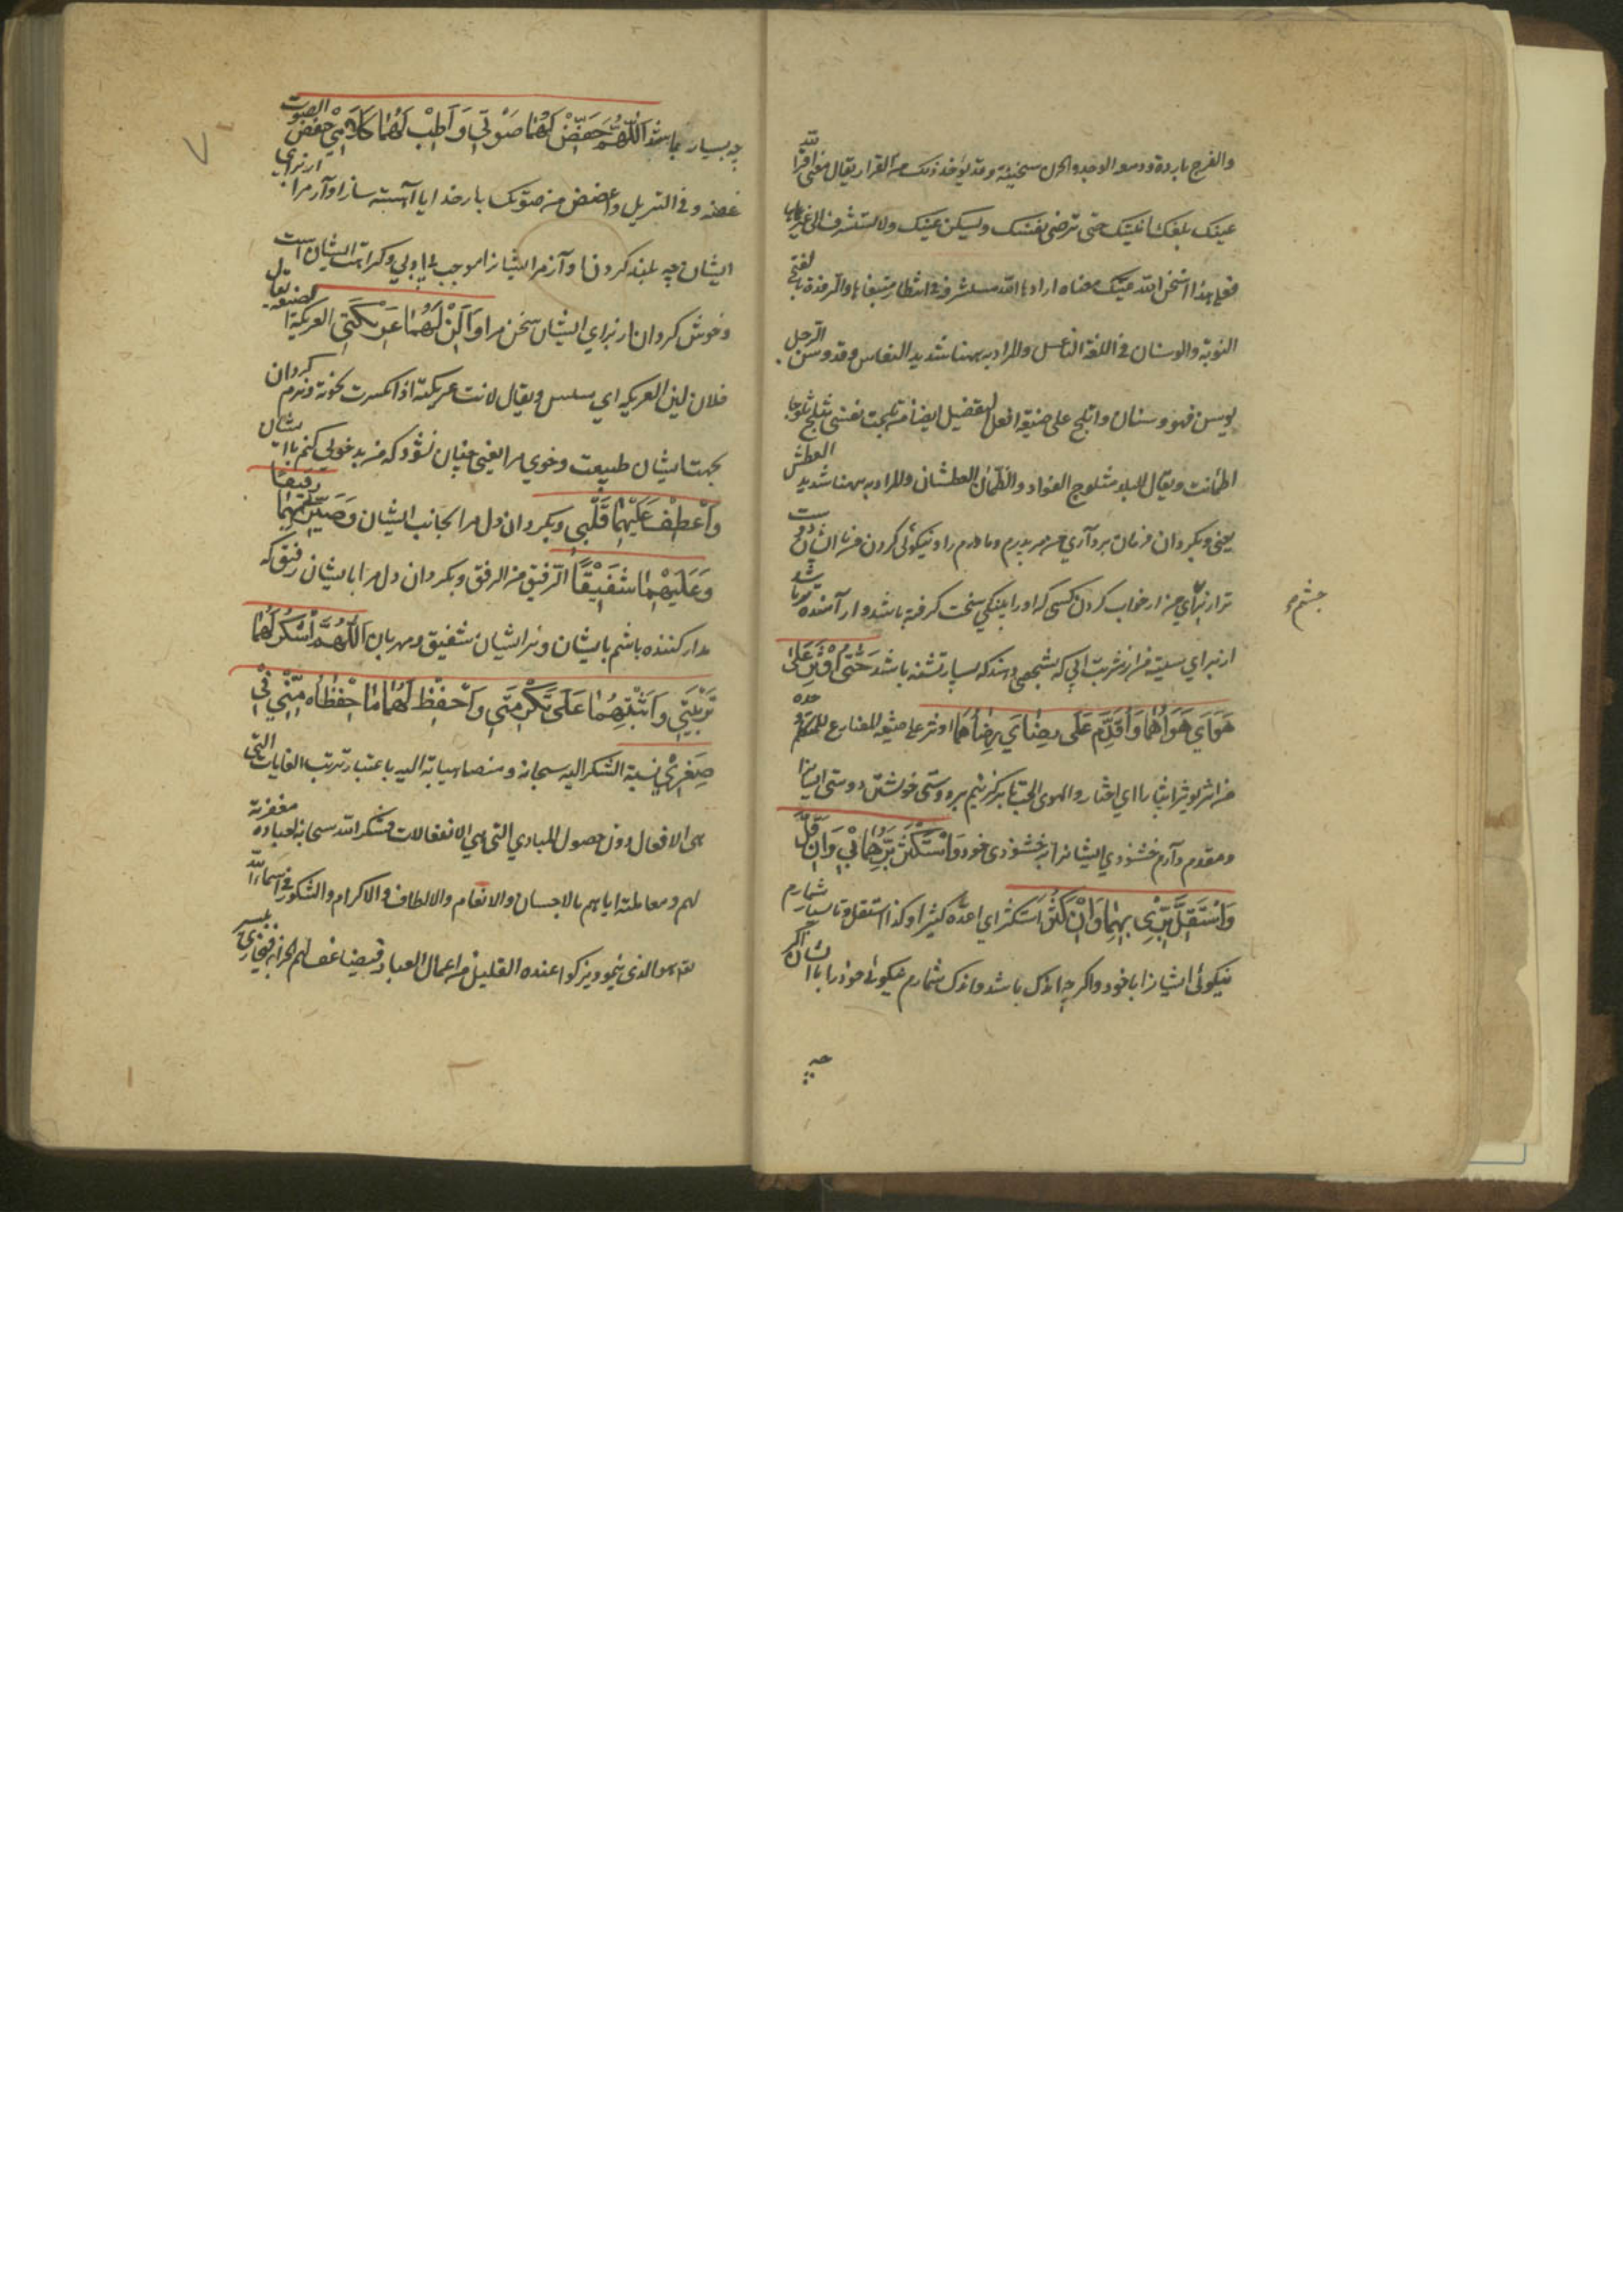 والفرح باردة ودمع الوجد والحزن سخينة وقد يؤخذ ذلك من القرار يقال معنى اقر الله
عينك بلغك امنيتك حتى ترضى نفسك وتسكن عينك ولا تستشرف الى غيره
فعلى هذا اسخن الله عينك معناه
النوبة والوسنان في اللغة الناعس والمراد به ههنا شديد النعاس وقد وسن الرجل
يوسن فهو وسنان واثلج على صيغة افعل التفضيل ايضا من ثلجت نفسي تثلج ثلوجا
اطمأنت ويقال للبليد مثلوج الفؤاد والظمآن العطشان والمراد به ههنا شديد العطش
يعني وبگردان فرمان برداري من مر پدرم ومادرم را ونيكوئي كردن من بايشان
تر از براي من از خواب كردن كسي كه اورا پينكي سخت گرفته باشد
چشم م
از براي سينه من از شربت آبي كه بسيار تشنه باشد حَتّى اُوثِرَ عَلى
هَوَايَ هَوَاهُمَا وَاُقَدِّمَ عَلَى رِضَايَ رِضَاهُمَا اوثر على صيغة المضارع للمتكلم وحده
من آثر يوثر ايثارا اي اختار والهوى الحب تا برگزينم بر دوستى خويشتن دوستى ايشانرا
ومقدم دارم خشنودي ايشانرا بر خشنودى خود وَاَسْتَكْثِرَ بِرَّهُمَا بِي وَاِنْ قَلَّ
وَاَسْتَقِلَّ بِرِّي بِهِمَا وَاِنْ كَثُرَ استكثر اي اعده كثيرا وكذا استقل وتا بسيار شمارم
نيكوئى ايشانرا با خود واگر چه اندك باشد واندك شمارم نيكوئى خود را با ايشان اگر
چه
چه بسيار باشد اَللّهُمَّ خَفِّضْ لَهُمَا صَوْتِي وَاَطِبْ لَهُمَا كَلَامِي خفض الصوت
غضه وفي التنزيل واغضض من صوتك بار خدايا آهسته ساز آواز مرا از براي
ايشان چه بلند كردن آواز مر ايشانرا موجب
وخوش گردان از براي ايشان سخن مرا وَاَلِنْ لَهُمَا عَرِيكَتِي العريكة الطبيعة يقال
فلان لين العريكة اي سلس ويقال لانت عريكته اذا انكسرت نخوته ونرم گردان
بجهت ايشان طبيعت وخوي مرا يعني چنان نشود كه من بدخوئي كنم با ايشان
وَاَعْطِفْ عَلَيْهِمَا قَلْبِي وبگردان دل مرا بجانب ايشان وَصَيِّرْنِي بِهِمَا رفيقا
وَعَلَيْهِمَا شَفِيقًا الرفيق من الرفق وبگردان دل مرا با ايشان رفيق كه
مدارا كننده باشم بايشان وبر ايشان شفيق ومهربان اَللّهُمَّ اشْكُرْ لَهُمَا
تَرْبِيَتِي وَاَثِبْهُمَا عَلَى تَكْرِمَتِي وَاحْفَظْ لَهُمَا مَا حَفِظَاهُ مِنِّي فِي
صِغَرِي نسبة الشكر اليه سبحانه باعتبار ترتب الغايات التي
هي الافعال دون حصول المبادي التي هي الانفعالات فشكر الله سبحانه لعباده مغفرته
لهم ومعاملته اياهم بالاحسان والانعام والالطاف والاكرام والشكور في اسماء الله
هو الذي ينمو ويزكو عنده القليل من اعمال العباد فيضاعف لهم الجزاء